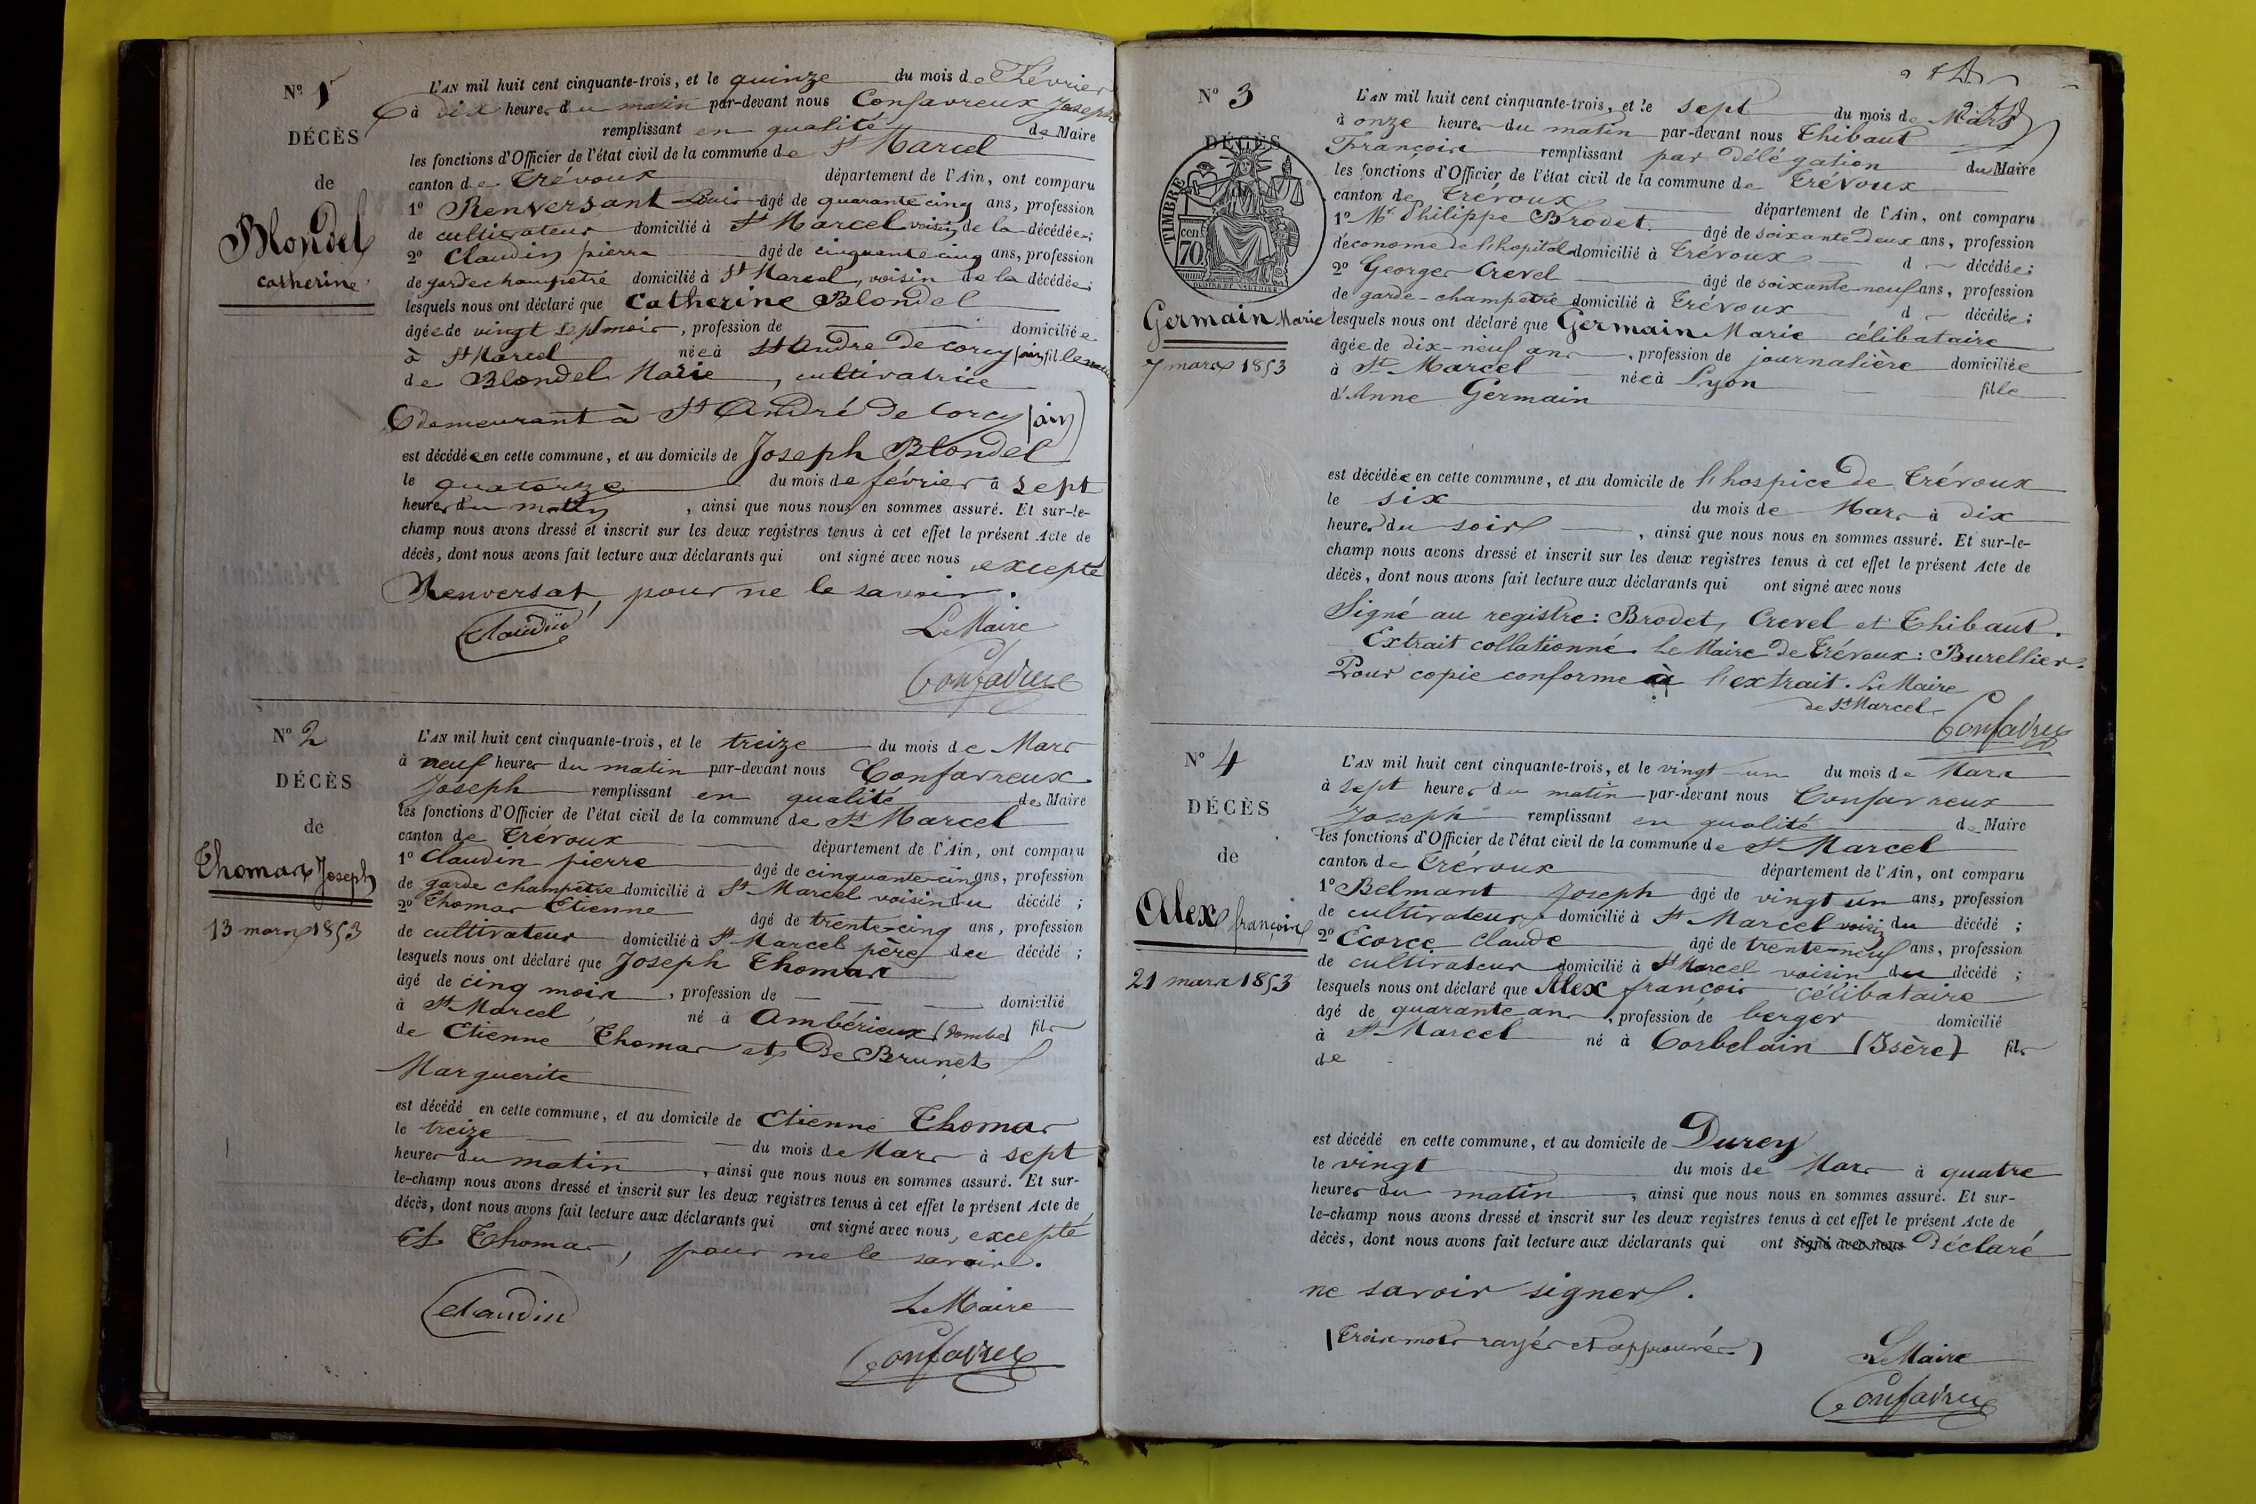 N° 1
DÉCÈS
de
Blondel
catherine
L'AN mil huit cent cinquante-trois, et le quinze du mois de Février
à dix heures du matin par-devant nous Confavreux Joseph
remplissant en qualité de Maire
les fonctions d'Officier de l'état civil de la commune de St Marcel
canton de Trévoux département de l'Ain, ont comparu
1° Renversant Louis âgé de quarante cinq ans, profession
de cultivateur domicilié à St Marcel voisin de la décédée;
2° Claudin pierre âgé de cinquante cinq ans, profession
de garde champetre domicilié à St Marcel, voisin de la décédée;
lesquels nous ont déclaré que Catherine Blondel
âgée de vingt sept mois, profession de domiciliée
à St Marcel née à St André de Corcy (ain) fille
de Blondel Marie, cultivatrice
demeurant à St André de Corcy (ain)
est décédée en cette commune, et au domicile de Joseph Blondel
le quatorze du mois de février à sept
heures du matin, ainsi que nous nous en sommes assuré. Et sur-le-
champ nous avons dressé et inscrit sur les deux registres tenus à cet effet le présent Acte de
décès, dont nous avons fait lecture aux déclarants qui ont signé avec nous excepté
Renversat, pour ne le savoir.
Claudin
Le Maire
Confavreux
N° 2
DÉCÈS
de
Thomas Joseph
13 mars 1853
L'AN mil huit cent cinquante-trois, et le treize du mois de Mars
à neuf heures du matin par-devant nous Confavreux
Joseph remplissant en qualité de Maire
les fonctions d'Officier de l'état civil de la commune de St Marcel
canton de Trévoux département de l'Ain, ont comparu
1° Claudin pierre âgé de cinquante-cinq ans, profession
de garde champetre domicilié à St Marcel voisin du décédé;
2° Thomas Etienne âgé de trente-cinq ans, profession
de cultivateur domicilié à St Marcel père du décédé;
lesquels nous ont déclaré que Joseph Thomas
âgé de cinq mois, profession de domicilié
à St Marcel né à Ambérieux (Dombes) fils
de Etienne Thomas et De Brunet
Marguerite
est décédé en cette commune, et au domicile de Etienne Thomas
le treize du mois de Mars à sept
heures du matin, ainsi que nous nous en sommes assuré. Et sur-
le-champ nous avons dressé et inscrit sur les deux registres tenus à cet effet le présent Acte de
décès, dont nous avons fait lecture aux déclarants qui ont signé avec nous, excepté
Et. Thomas, pour ne le savoir.
Claudin
Le Maire
Confavreux
N° 3
DÉCÈS
TIMBRE
70
cent
Germain Marie
7 mars 1853
L'AN mil huit cent cinquante-trois, et le sept du mois de Mars
à onze heures du matin par-devant nous Thibaut
François remplissant par délégation du Maire
les fonctions d'Officier de l'état civil de la commune de Trévoux
canton de Trévoux département de l'Ain, ont comparu
1° Mr Philippe Brodet âgé de soixante-deux ans, profession
d'économe de l'hopital domicilié à Trévoux d décédée;
2° Georges Crevel âgé de soixante-neuf ans, profession
de garde-champetre domicilié à Trévoux d décédée;
lesquels nous ont déclaré que Germain Marie célibataire
âgée de dix-neuf ans, profession de journalière domiciliée
à St Marcel née à Lyon fille
d'Anne Germain
est décédée en cette commune, et au domicile de l'hospice de Trévoux
le six du mois de Mars à dix
heures du soir, ainsi que nous nous en sommes assuré. Et sur-le-
champ nous avons dressé et inscrit sur les deux registres tenus à cet effet le présent Acte de
décès, dont nous avons fait lecture aux déclarants qui ont signé avec nous
Signé au registre: Brodet, Crevel et Thibaut.
Extrait collationné. Le Maire de Trévoux: Burellier.
Pour copie conforme à l'extrait. Le Maire
de St Marcel
Confavreux
N° 4
DÉCÈS
de
Alex françois
21 mars 1853
L'AN mil huit cent cinquante-trois, et le vingt-un du mois de Mars
à sept heures du matin par-devant nous Confavreux
Joseph remplissant en qualité de Maire
les fonctions d'Officier de l'état civil de la commune de St Marcel
canton de Trévoux département de l'Ain, ont comparu
1° Belmant Joseph âgé de vingt un ans, profession
de cultivateur domicilié à St Marcel voisin du décédé;
2° Ecorce Claude âgé de trente-neuf ans, profession
de cultivateur domicilié à St Marcel voisin du décédé;
lesquels nous ont déclaré que Alex françois célibataire
âgé de quarante ans, profession de berger domicilié
à St Marcel né à Corbelain (Isère) fils
de
est décédé en cette commune, et au domicile de Durey
le vingt du mois de Mars à quatre
heures du matin, ainsi que nous nous en sommes assuré. Et sur-
le-champ nous avons dressé et inscrit sur les deux registres tenus à cet effet le présent Acte de
décès, dont nous avons fait lecture aux déclarants qui ont signé avec nous Déclaré
ne savoir signer.
(Trois mots rayés et approuvés)
Le Maire
Confavreux